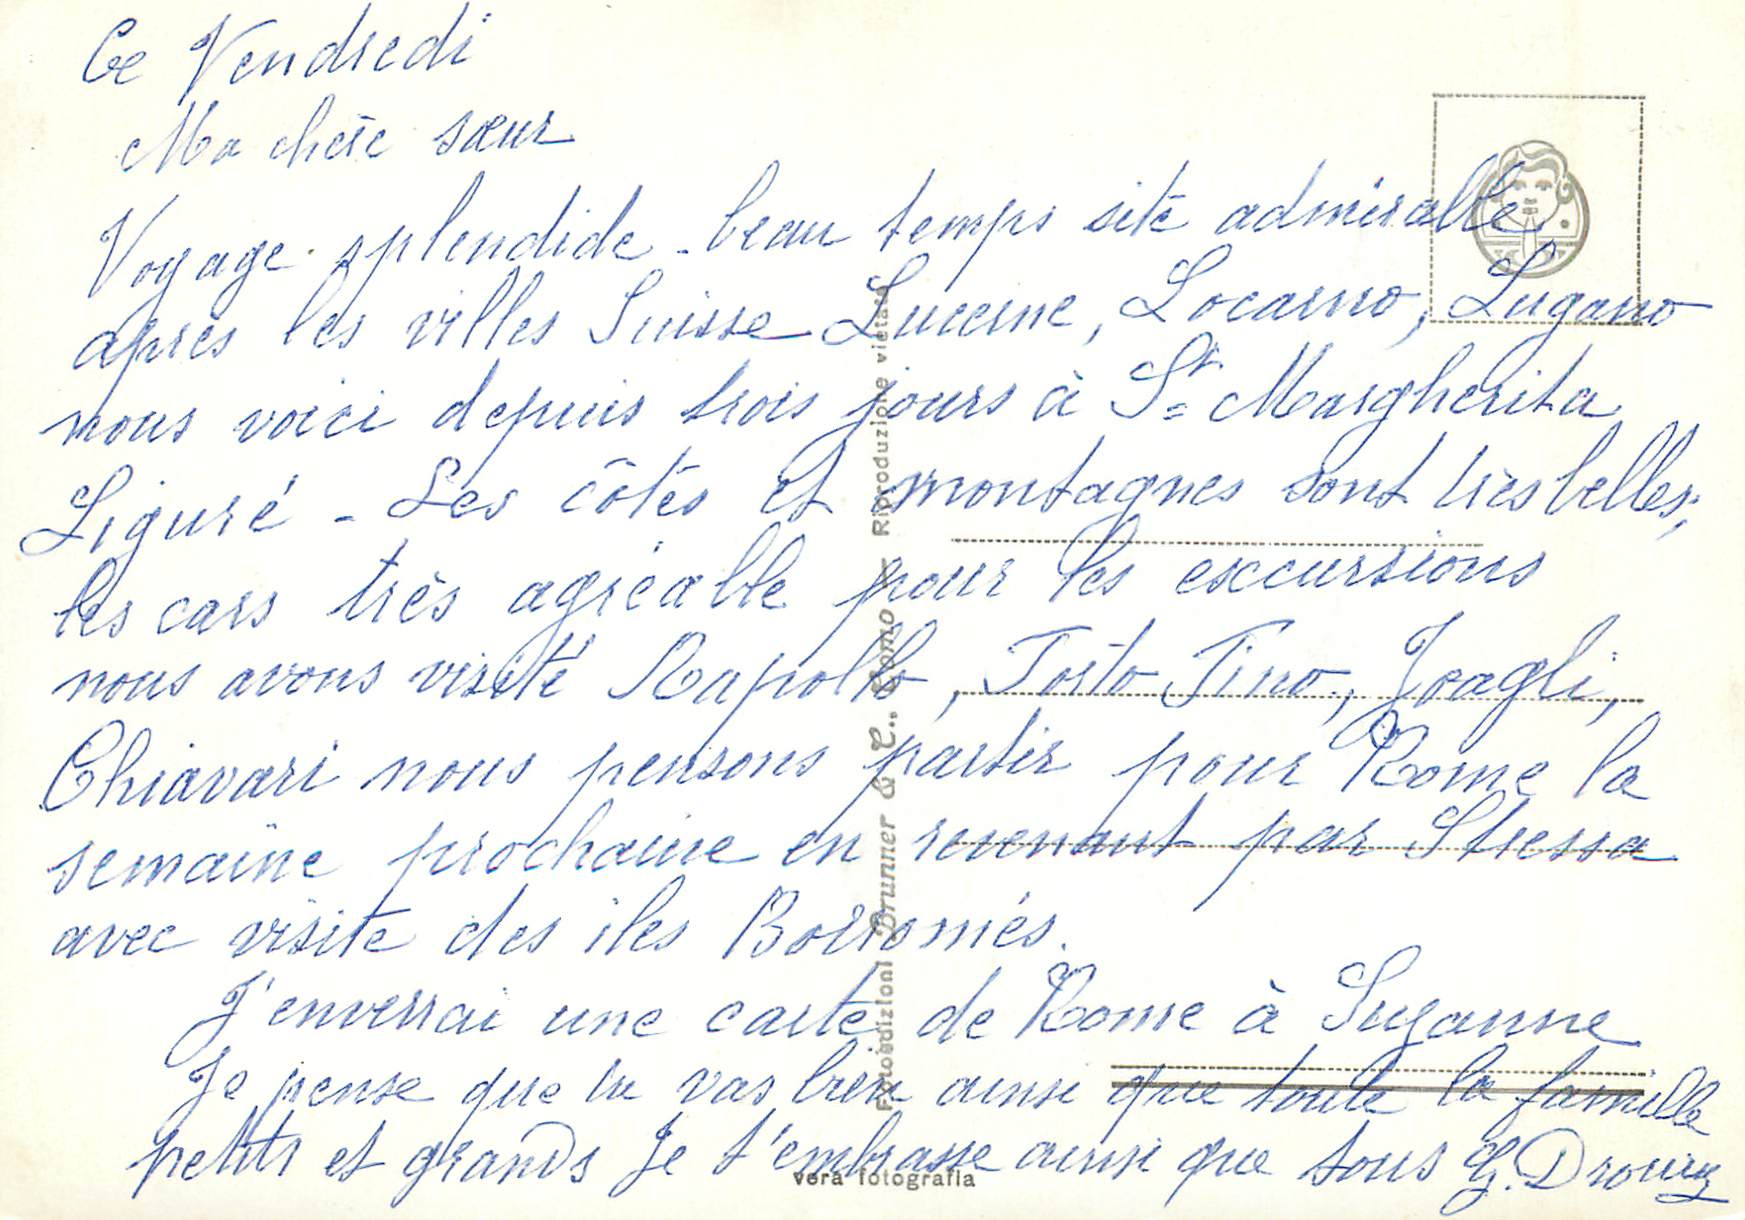 Ce Vendredi
Ma chère sœur
Voyage splendide - beau temps site admirable,
après les villes Suisse Lucerne, Locarno, Lugano
nous voici depuis trois jours à Sta Margherita
Liguré - Les côtés et montagnes sont très belles,
les cars très agréable pour les exccursions
nous avons visité Rapollo, Porto Fino, Zoagli,
Chiavari nous pensons partir pour Rome la
semaine prochaine en revenant par Stressa
avec visite des iles Borromés.
J'enverrai une carte de Rome à Suzanne
Je pense que tu vas bien ainsi que toute la famille
petits et grands Je t'embrasse ainsi que tous G. Drouin
Fotoedizioni Brunner & C., Como - Riproduzione vietata
vera fotografia